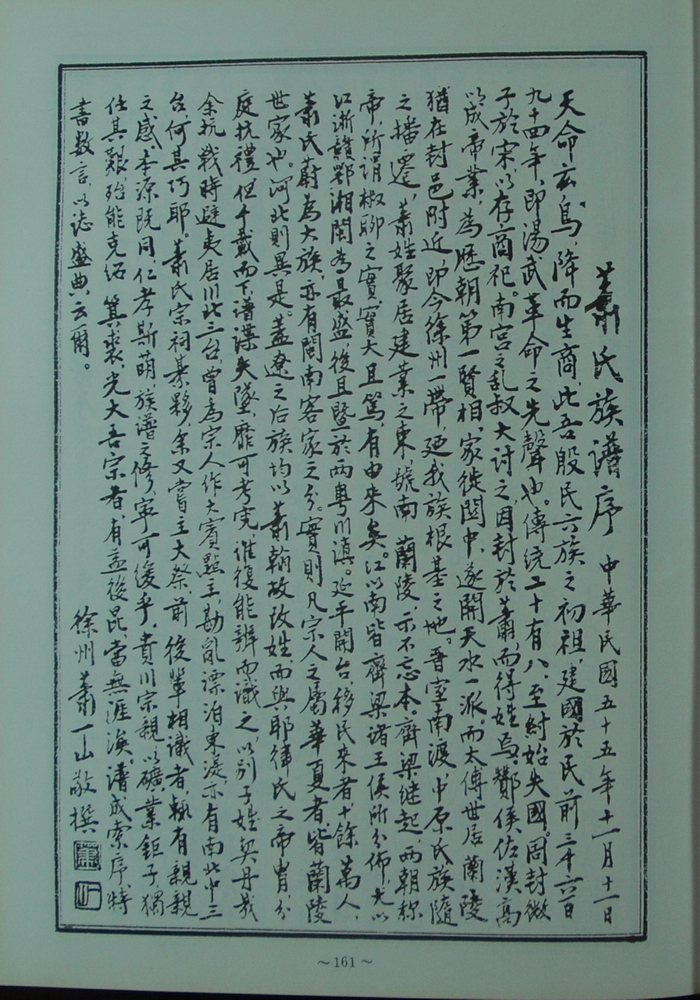 蕭氏族譜序 中華民國五十五年十一月十一日
天命玄鳥，降而生商，此吾殷民六族之初祖，建國於民前三千六百
九十四年，即湯武革命之先聲也。傳統二十有八，至紂始失國。周封微
子於宋，以存商祀。南宮之乱，叔大討之，因封於蕭，而得姓焉。酇侯佐漢高
以成帝業，為歷朝第一賢相，家徙關中，遂開天水一派。而太傅世居蘭陵
猶在封邑附近，即今徐州一帶，廼我族根基之地。晋室南渡，中原氏族隨
之播遷，蕭姓聚居建業之東，號南蘭陵，示不忘本。齊梁继起，两朝称
帝，所謂椒聊之實，實大且篤，有由來矣。江以南皆齊梁諸王侯所分佈，尤以
江浙贛鄂湘閩為最盛，後且暨於两粤川滇。延平開台，移民來者十餘萬人，
蕭氏蔚為大族，亦有閩南客家之分。實則凡宗人之屬華夏者，皆蘭陵
世家也。河北則異是。盖遼之后族均以蕭翰故改姓，而與耶律氏之帝胄分
庭抗禮。但千載而下，谱諜失墜，靡可考究，谁復能辨而識之，以别子姓契丹哉
余抗戰時避夷居川北三台，曾為宗人作大賓點主，勘亂漂泊東瀛，亦有南北中三
台，何其巧耶。蕭氏宗祠綦夥，余又嘗主大祭，前後輩相識者，頗有親親
之感。本源既同，仁孝斯萌，族譜之修，寧可缓乎。貴川宗親以礦業鉅子，獨
任其艱，殆能克绍箕裘，光大吾宗者，有孟後昆，當無涯涘。譜成索序，特
書數言，以誌盛典云爾。
徐州蕭一山敬撰
～161～